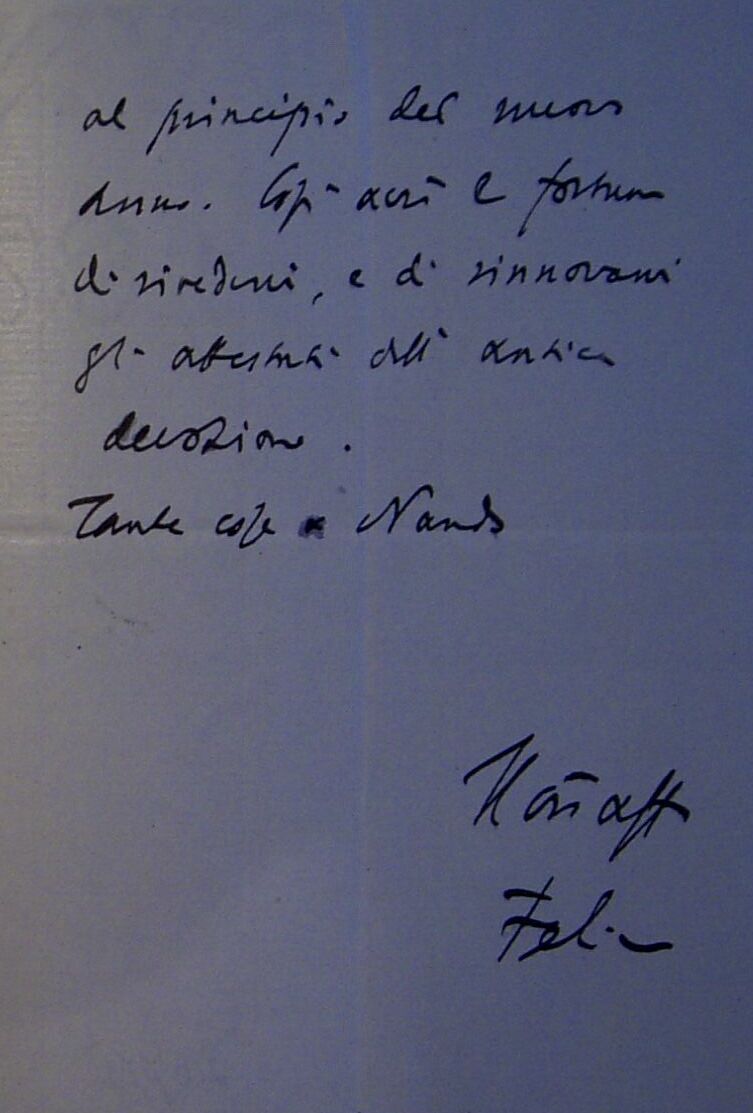 al principio del nuovo
anno. Così avrò la fortuna
di rivedervi, e di rinnovarvi
gli attestati dell' antica
devozione.
Tante cose a Nando
aff